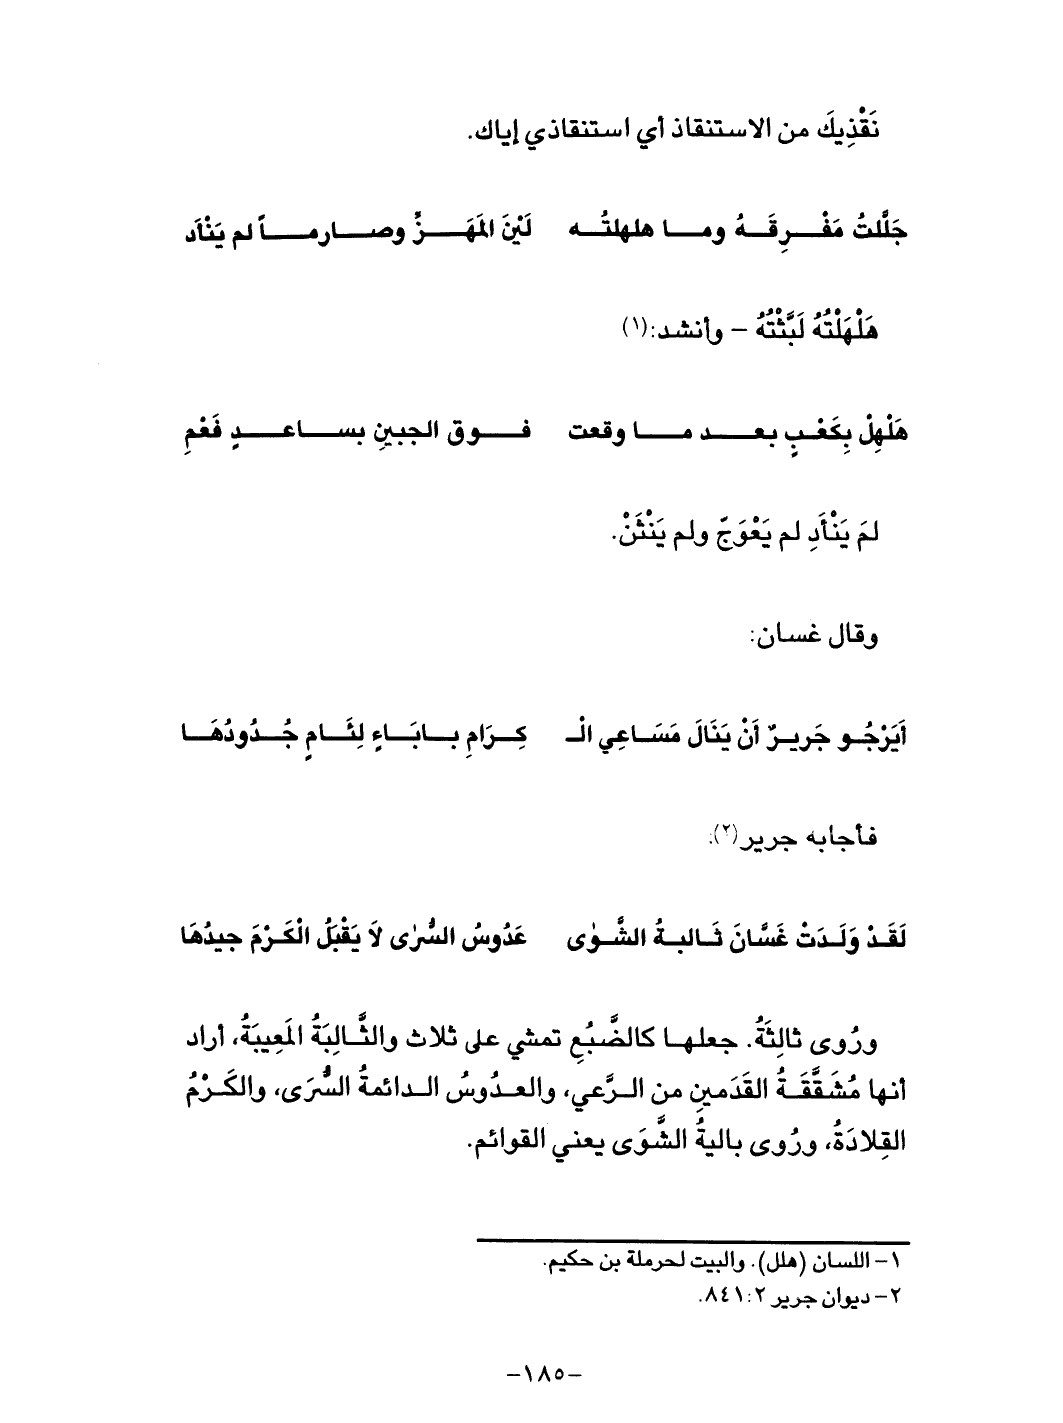 نَقْذِيكَ من الاستنقاذ أي استنقاذي إياك.
جَلَّلتُ مَفْـرِقَـهُ ومـا هلهلتُـه لَيْنَ المَهَـزِّ وصـارمـاً لم يَنْأَد
هَلْهَلْتُهُ لَبَّثْتُهُ – وأنشد:(١)
هَلْهِلْ بِكَعْبٍ بعـد مـا وقعت فـوق الجبينِ بسـاعـدٍ فَعْمِ
لمَ يَنْأَدِ لم يَعْوَجّ ولم يَنْثَنْ.
وقال غسان:
أَيَرْجُـو جَرِيـرٌ أَنْ يَنَالَ مَسَـاعِي الْـ كِـرَامِ بـابَـاءٍ لِئَـامٍ جُـدُودُهَـا
فأجابه جرير(٢):
لَقَـدْ وَلَـدَتْ غَسَّانَ ثَـالبـةُ الشَّـوٰى عَدُوسُ السُّرٰى لاَ يَقْبَلُ الْكَـرْمَ جيدُهَا
ورُوى ثالِثَةُ. جعلهـا كالضَّبُعِ تمشي على ثلاث والثَّـالِبَةُ المَعِيبَةُ، أراد
أنها مُشَقَّقَـةُ القَدَمينِ من الـرَّعي، والعـدُوسُ الـدائمةُ السُّرَى، والكَـرْمُ
القِلادَةُ، ورُوى باليةُ الشَّوَى يعني القوائم.
١– اللسان (هلل). والبيت لحرملة بن حكيم.
٢– ديوان جرير ٢: ٨٤١.
–١٨٥–